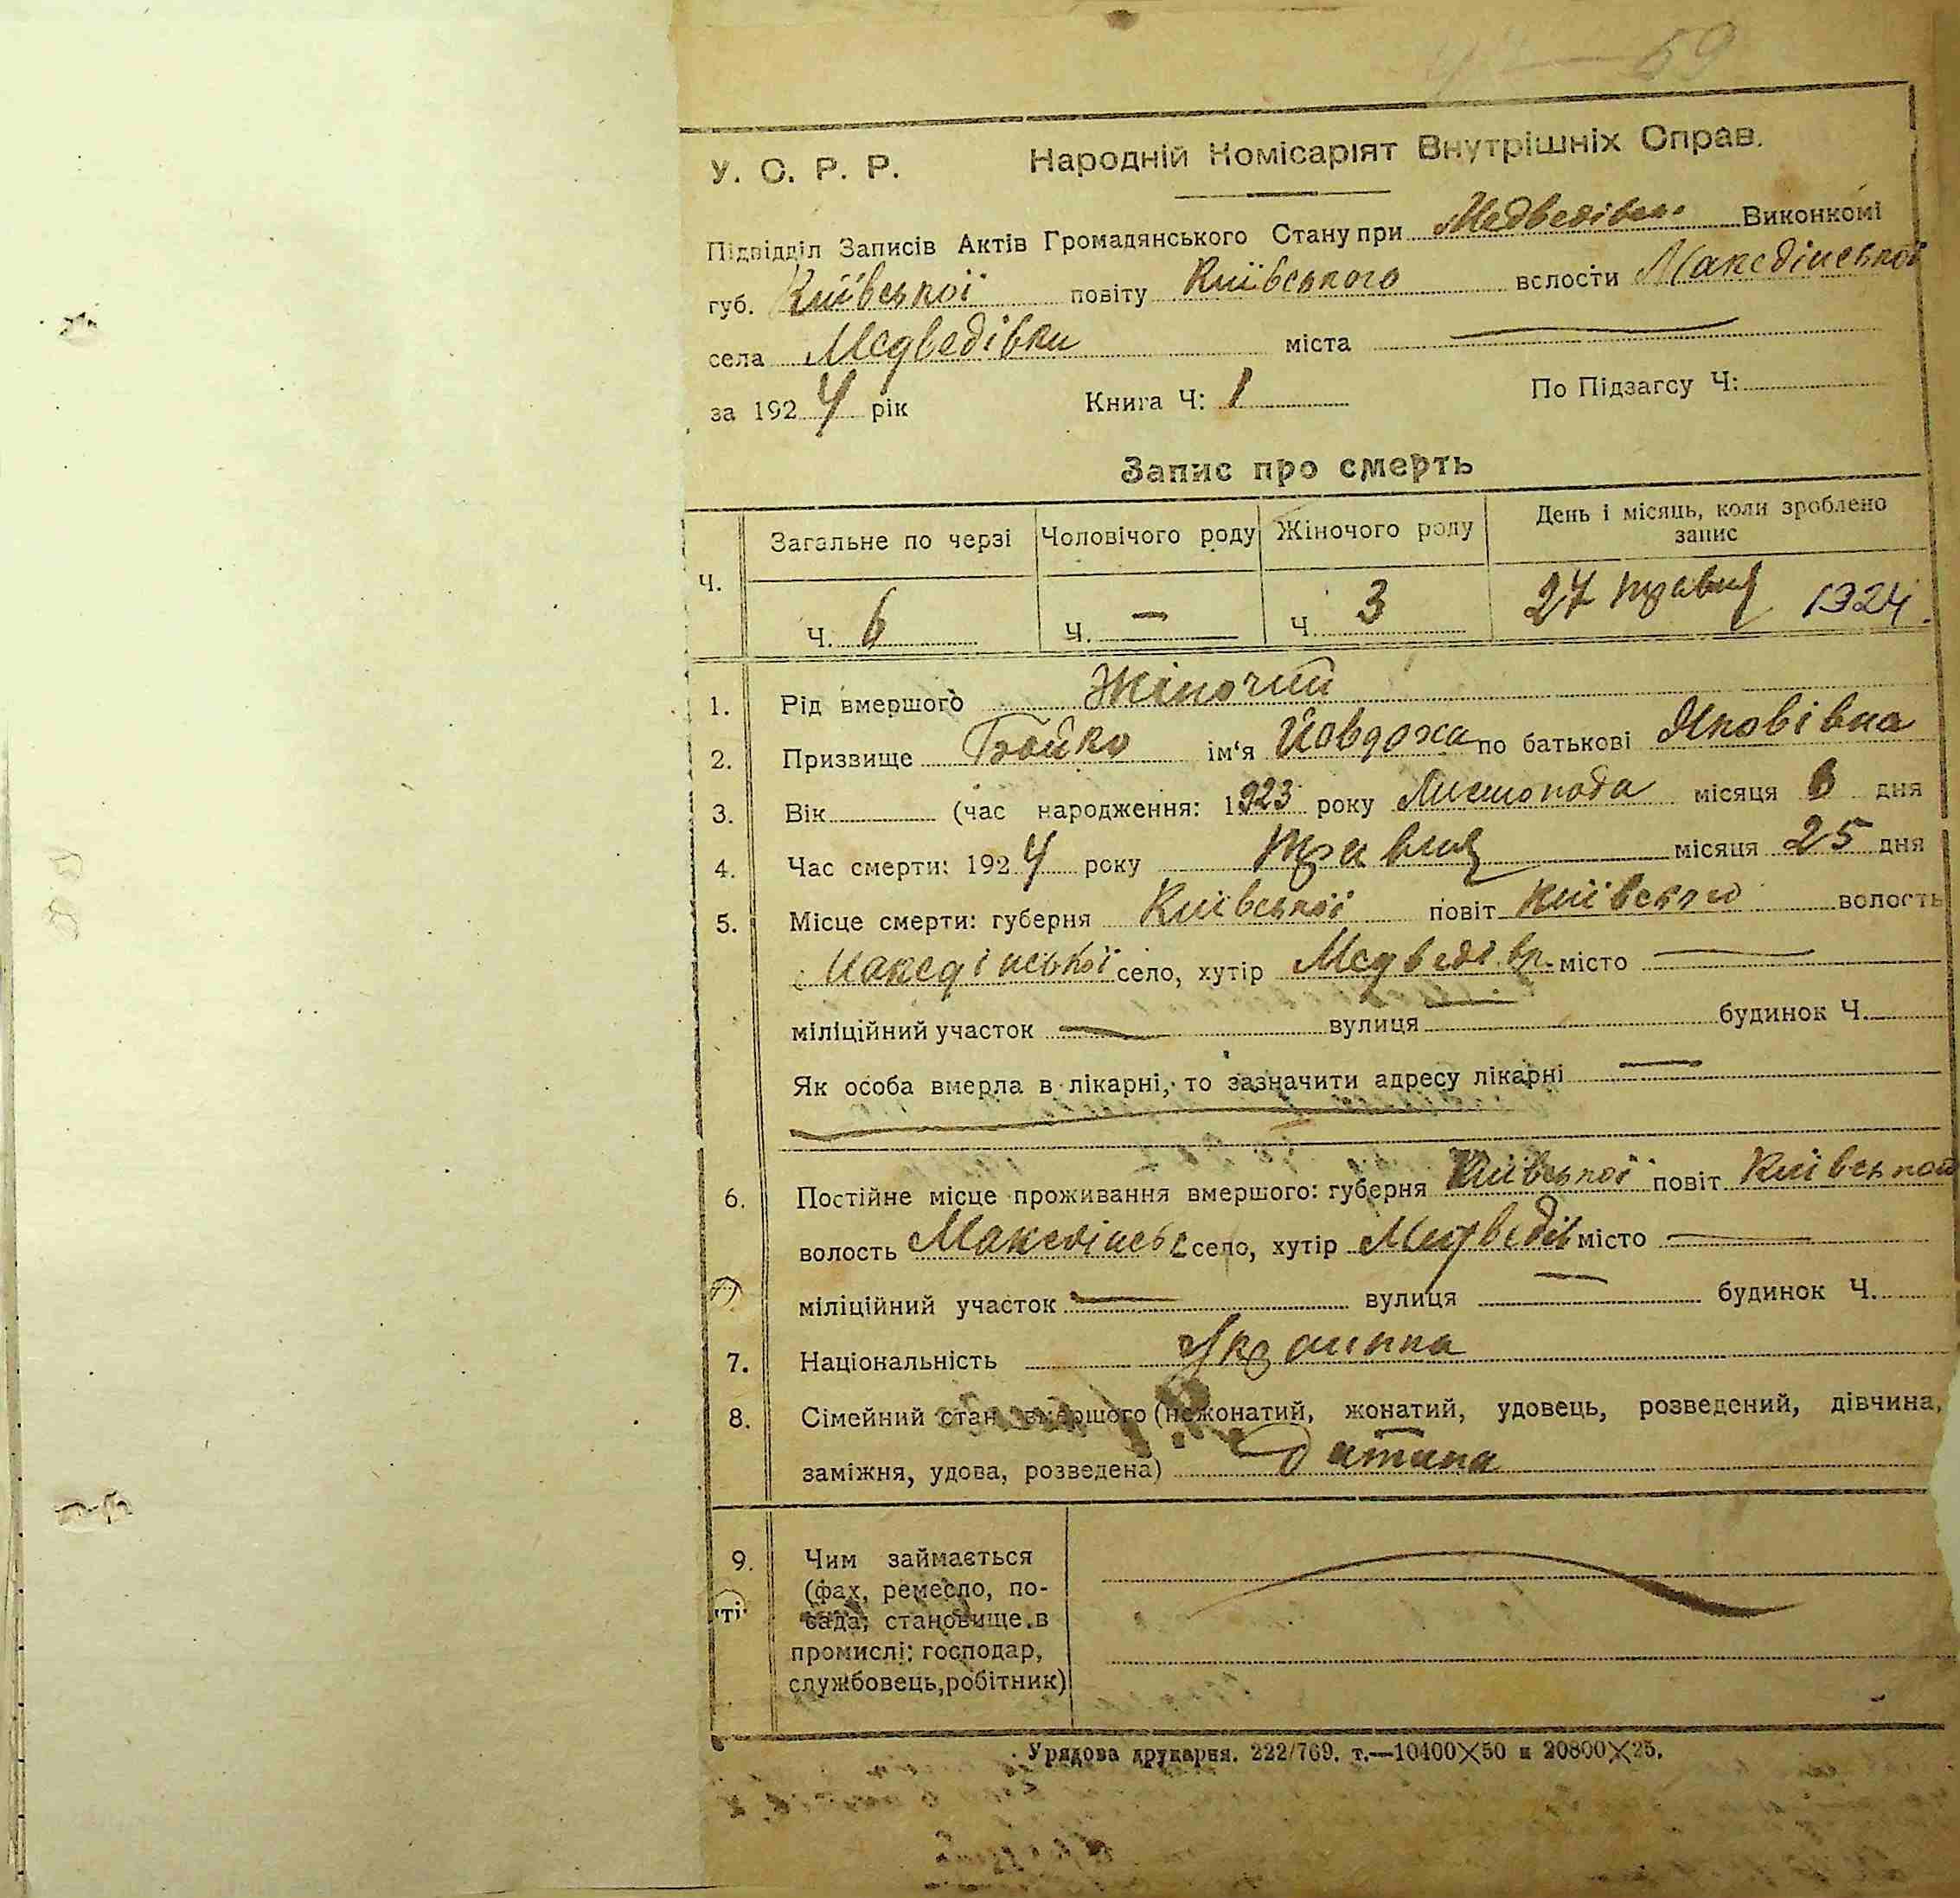 59
У. С. Р. Р. Народній Комісаріят Внутрішніх Справ.
Підвідділ Записів Актів Громадянського Стану при Медведівськ. Виконкомі
губ. Київської повіту Київського волости Макєдінської
села Медведівки міста —
за 1924 рік Книга Ч: 1 По Підзагсу Ч:
Запис про смерть
Ч. Загальне по черзі Чоловічого роду Жіночого роду День і місяць, коли зроблено запис
Ч. 6 Ч. — Ч. 3 27 травня 1924.
1. Рід вмершого Жіночий
2. Призвище Бойко ім‘я Йовдоха по батькові Яковівна
3. Вік (час народження: 1923 року Листопада місяця 6 дня
4. Час смерти: 1924 року Травня місяця 25 дня
5. Місце смерти: губерня Київської повіт Київського волость
Макєдінської село, хутір Медведівк. місто —
міліційний участок — вулиця будинок Ч.
Як особа вмерла в лікарні, то зазначити адресу лікарні —
6. Постійне місце проживання вмершого: губерня Київської повіт Київської
волость Макєдінськ село, хутір Медведів місто —
міліційний участок — вулиця — будинок Ч.
7. Національність Українка
8. Сімейний стан вмершого (нежонатий, жонатий, удовець, розведений, дівчина,
заміжня, удова, розведена) Дитина
9. Чим займається
(фах, ремесло, по-
сада; становище в
промислі: господар,
службовець, робітник)
Урядова друкарня. 222/769. т.—10400×50 и 20800×25.